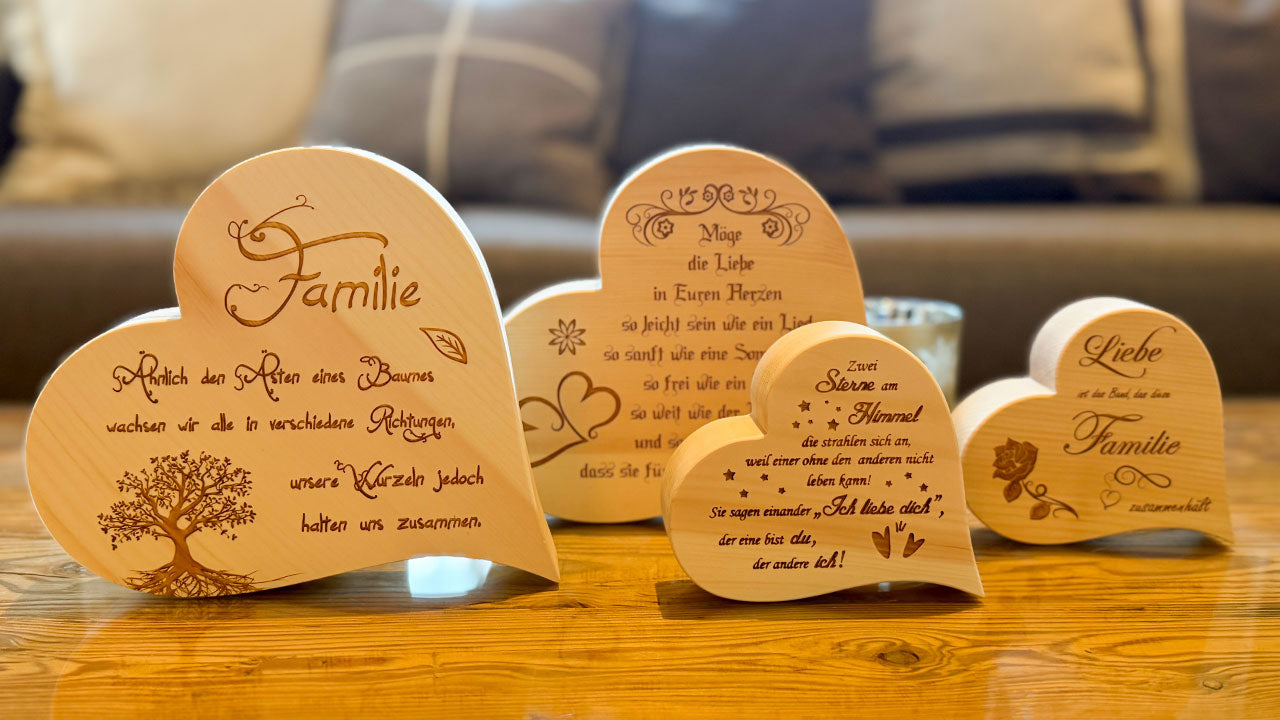 Familie
Ähnlich den Ästen eines Baumes
wachsen wir alle in verschiedene Richtungen,
unsere Wurzeln jedoch
halten uns zusammen.
Möge
die Liebe
in Euren Herzen
so leicht sein wie ein Lied
so sanft wie eine
so frei wie ein
so weit wie der
und
dass sie für
Zwei
Sterne am
Himmel
die strahlen sich an,
weil einer ohne den anderen nicht
leben kann!
Sie sagen einander „Ich liebe dich",
der eine bist du,
der andere ich!
Liebe
ist das Band, das diese
Familie
zusammenhält